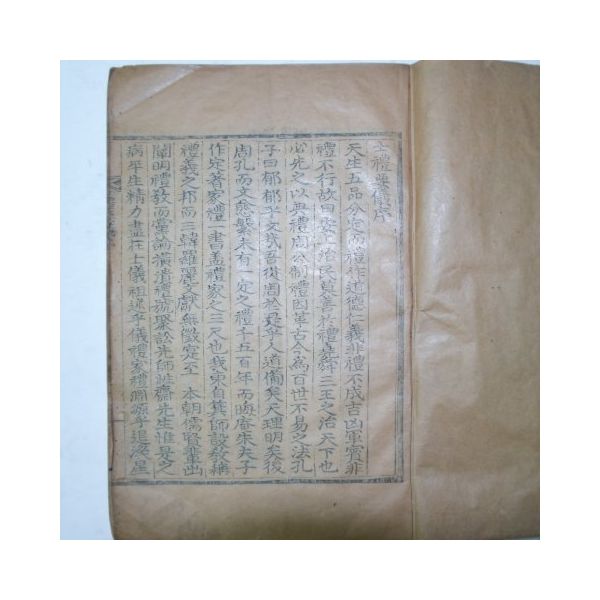 士禮要儀序
天生五品分定而禮作道德仁義非禮不成吉凶軍賓非
禮不行故曰安上治民莫善於禮堯舜三王之治天下也
必先之以典禮周公制禮因革古今爲百世不易之法孔
子曰郁郁乎文哉吾從周於是乎人道備矣天理明矣後
周孔而文愈繁未有一定之禮千五百年而晦庵朱夫子
作定著家禮一書盖禮家之三尺也我東自箕師設敎稱
禮義之邦而三韓羅麗文獻無徵寔至 本朝儒賢輩出
闡明禮敎而黨論潰禮號聚訟先師性齋先生惟是之
病平生精力盡在士儀祖述乎儀禮家禮淵源乎退溪星